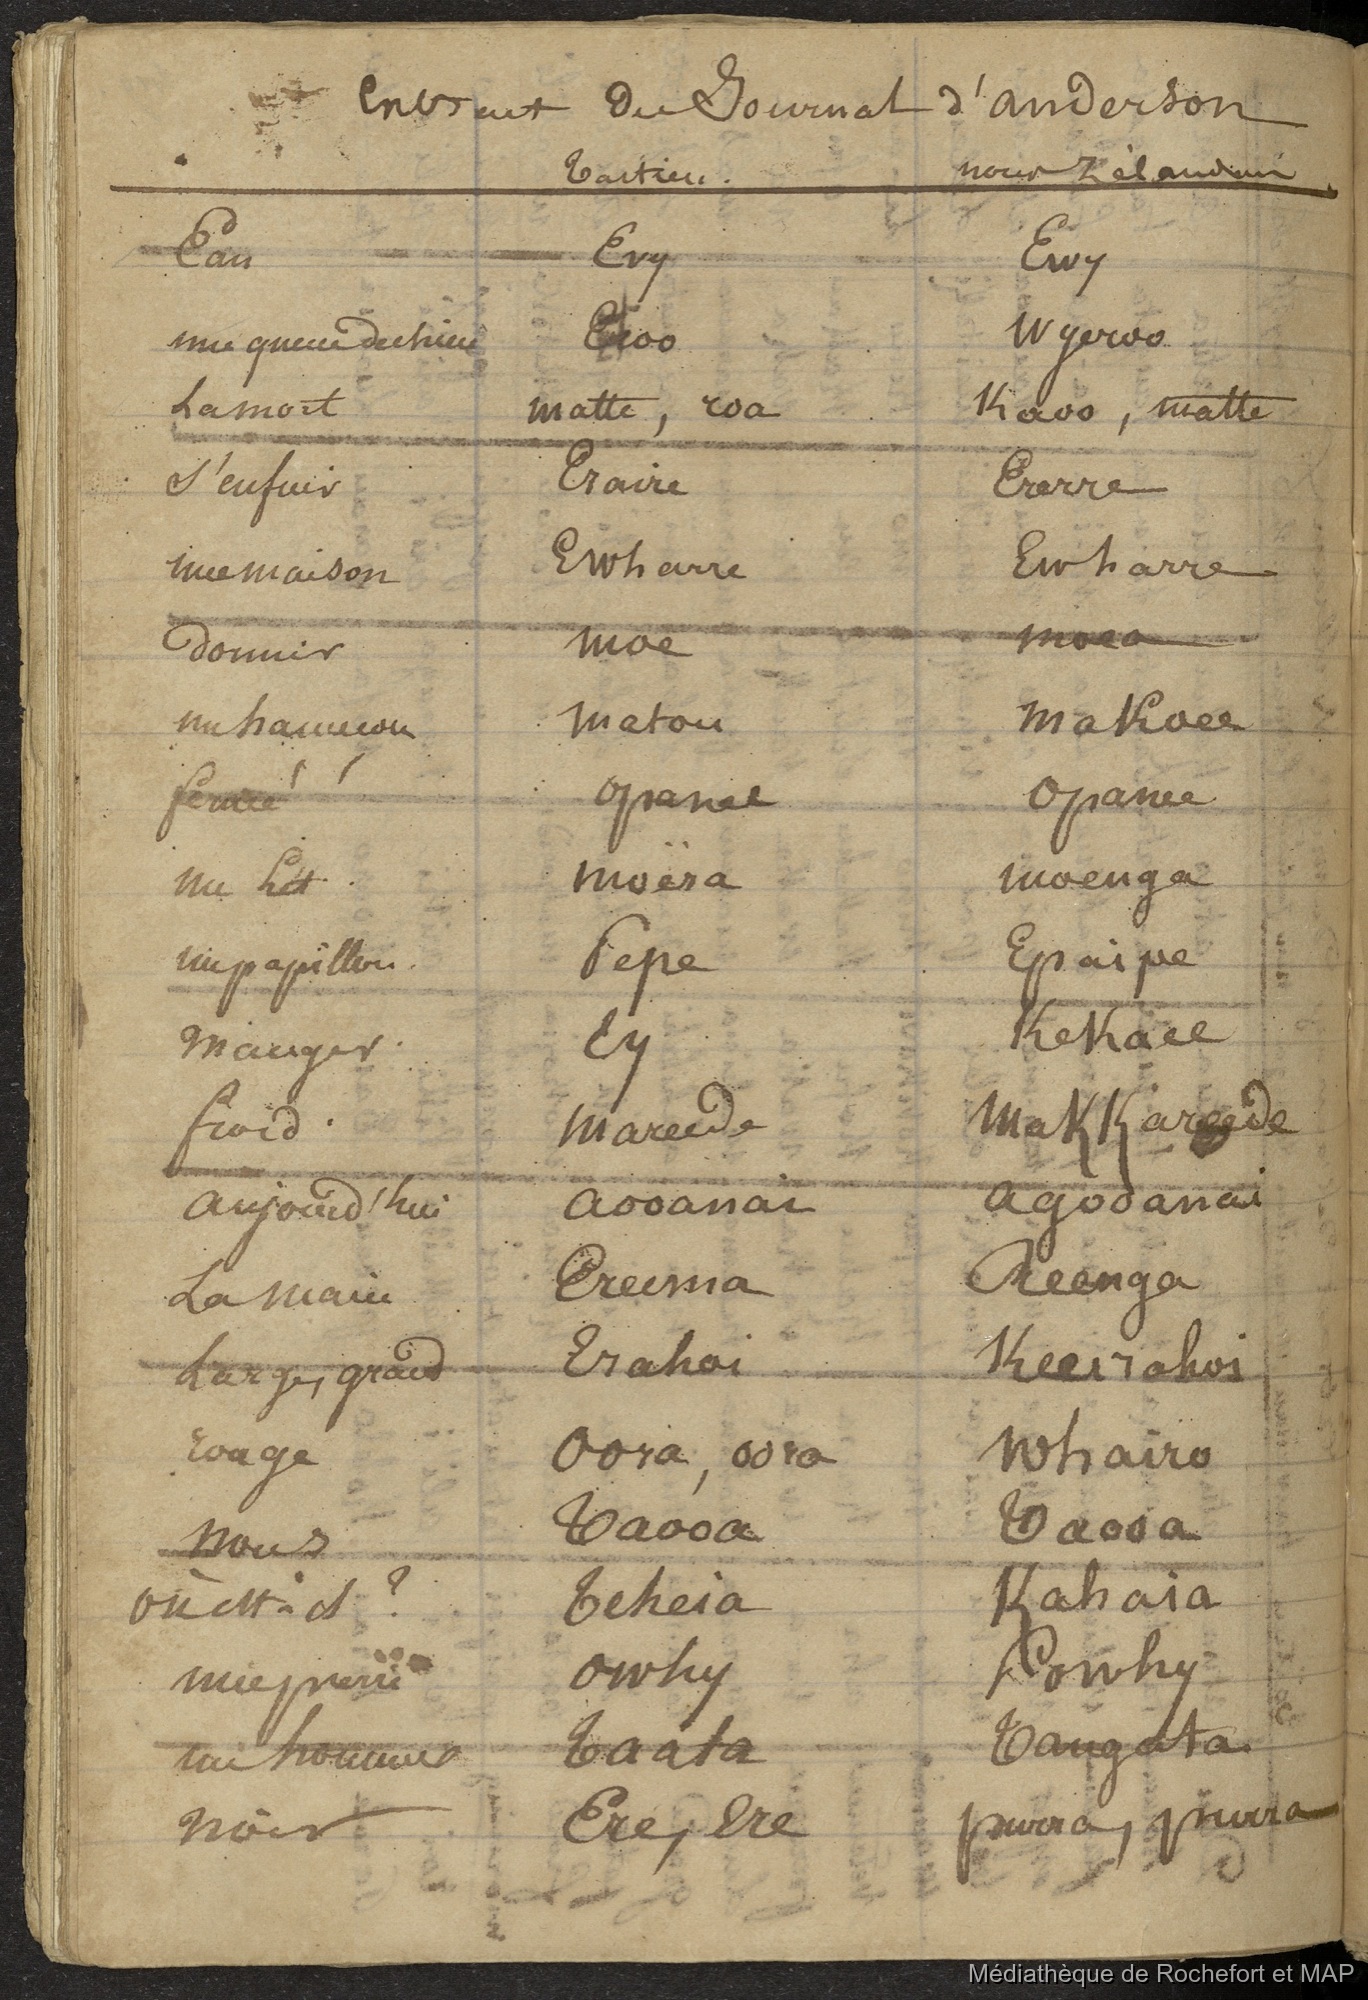 Extrait du Journal d'anderson
Taitien. nouv Zélandais
Eau Evy Ewy
une queue de chien Eroo Wyeroo
La mort matte, roa Kaoo, matte
S'enfuir Eraire Ererre
une maison Ewharre Ewharre
Dormir moe moea
un hameçon matou maKoee
fermé opanee opanee
un Lit moëra moenga
un papillon. Pepe Epaipe
manger. Ey KeKaee
froid. mareede maKKareede
aujourd'hui aooanai agooanai
La main Ereema Reenga
Large, grand Erahoi Keeirahoi
rouge oora, oora whairo
nous Taooa Taooa
où est-il ? Teheia Kahaia
une pierre owhy Powhy
un homme Taata Taugata
noir Ere, Ere purra, purra
Médiathèque de Rochefort et MAP